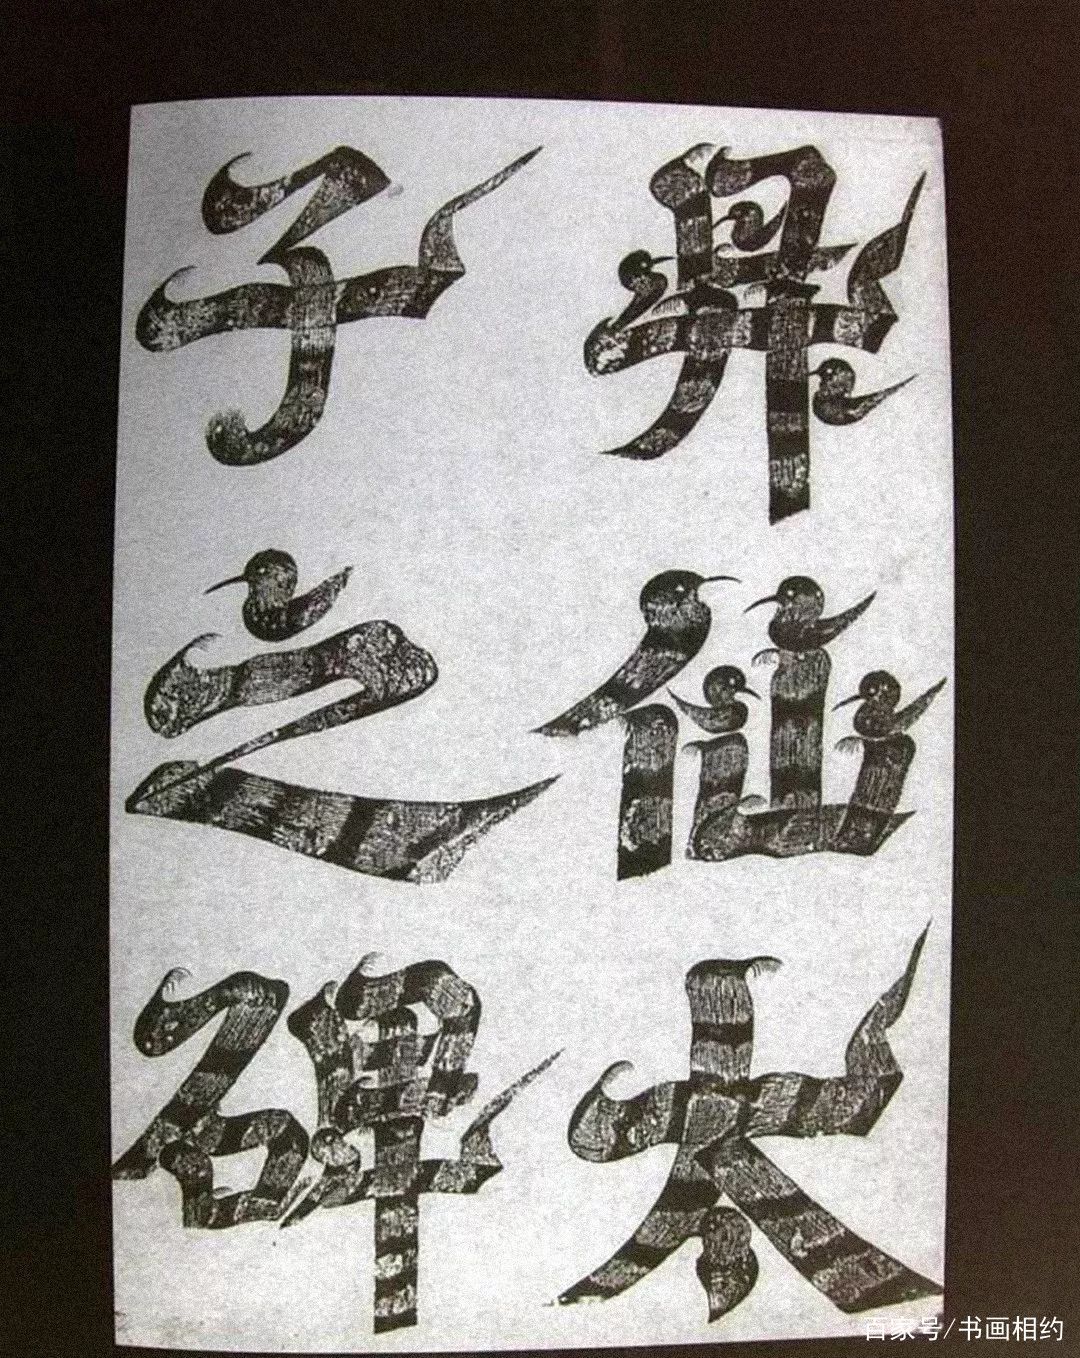 昇仙太
子之碑
百家号/书画相约